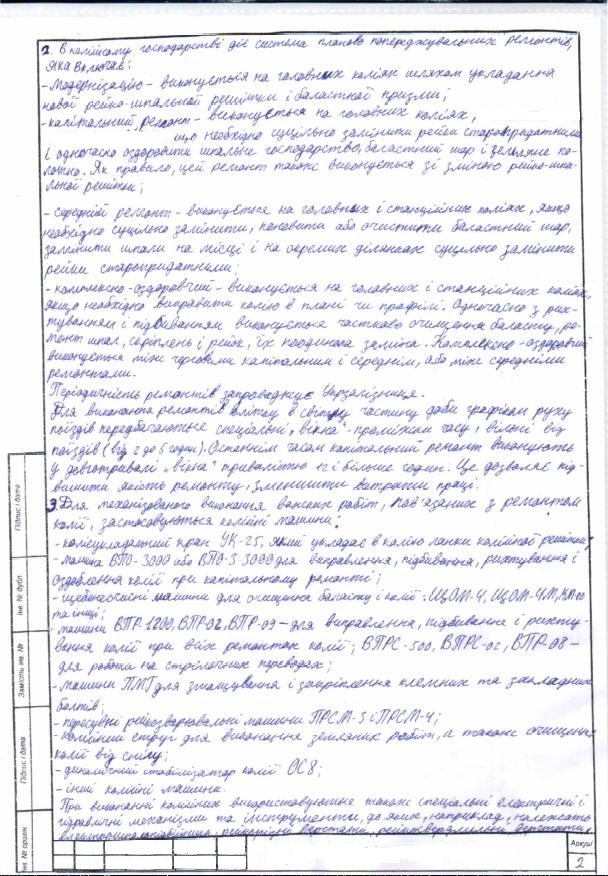 2. В колійному господарстві діє система планово попереджувальних ремонтів,
яка включає:
- Модернізацію - виконується на головних коліях шляхом укладання
нової рейко-шпальної решітки і баластної призми;
- капітальний ремонт - виконується на головних коліях,
що необхідно суцільно замінити рейки старопридатними
і одночасно оздоровити шпальне господарство, баластний шар і земляне по-
лотно. Як правило, цей ремонт також виконується зі зміною рейко-шпа-
льної решітки;
- середній ремонт - виконується на головних і станційних коліях, якщо
необхідно суцільно замінити, поповнити або очистити баластний шар,
замінити шпали на місці і на окремих ділянках суцільно замінити
рейки старопридатними;
- комплексно-оздоровчий - виконується на головних і станційних коліях,
якщо необхідно виправити колію в плані чи профілі. Одночасно з рих-
туванням і підбиванням виконується часткове очищення баласту, ре-
монт шпал, скріплень і рейок, їх поодинока заміна. Комплексно-оздоровчий
виконується між черговими капітальним і середнім, або між середніми
ремонтами.
Періодичність ремонтів запроваджує Укрзалізниця.
Для виконання ремонтів влітку в світлу частину доби графіком руху
поїздів передбачаються спеціальні „вікна"-проміжки часу, вільні від
поїздів (від 2 до 5 годин). Останнім часом капітальний ремонт виконують
у довготривалі „вікна" тривалістю 12 і більше годин. Це дозволяє під-
вищити якість ремонту, зменшити витрати праці.
3. Для механізованого виконання важких робіт, пов'язаних з ремонтом
колії, застосовуються колійні машини:
- колієукладальний кран УК-25, який укладає в колію ланки колійної решітки;
- машина ВПО-3000 або ВПО-3-3000 для виправлення, підбивання, рихтування і
оздоблення колії при капітальному ремонті;
- щебенеочисні машини для очищення баласту і колії: ЩОМ-4, ЩОМ-4М,
та інші;
- машини ВПР-1200, ВПР-02, ВПР-09 - для виправлення, підбивання і рихту-
вання колії при всіх ремонтах колії; ВПРС-500, ВПРС-02, ВПР-08 -
для роботи на стрілочних переводах;
- машини ПМГ для змащування і закріплення клемних та закладних
болтів;
- пересувні рейкозварювальні машини ПРСМ-3 і ПРСМ-4;
- колійний струг для виконання земляних робіт, а також очищення
колії від снігу;
- динамічний стабілізатор колії
- інші колійні машини.
При виконанні колійних використовуються також спеціальні електричні і
гідравлічні механізми та інструменти, до яких, наприклад, належать
Підпис і дата
Інв. № дубл.
Замість інв. №
Підпис і дата
Інв. № оригін.
Аркуш
2